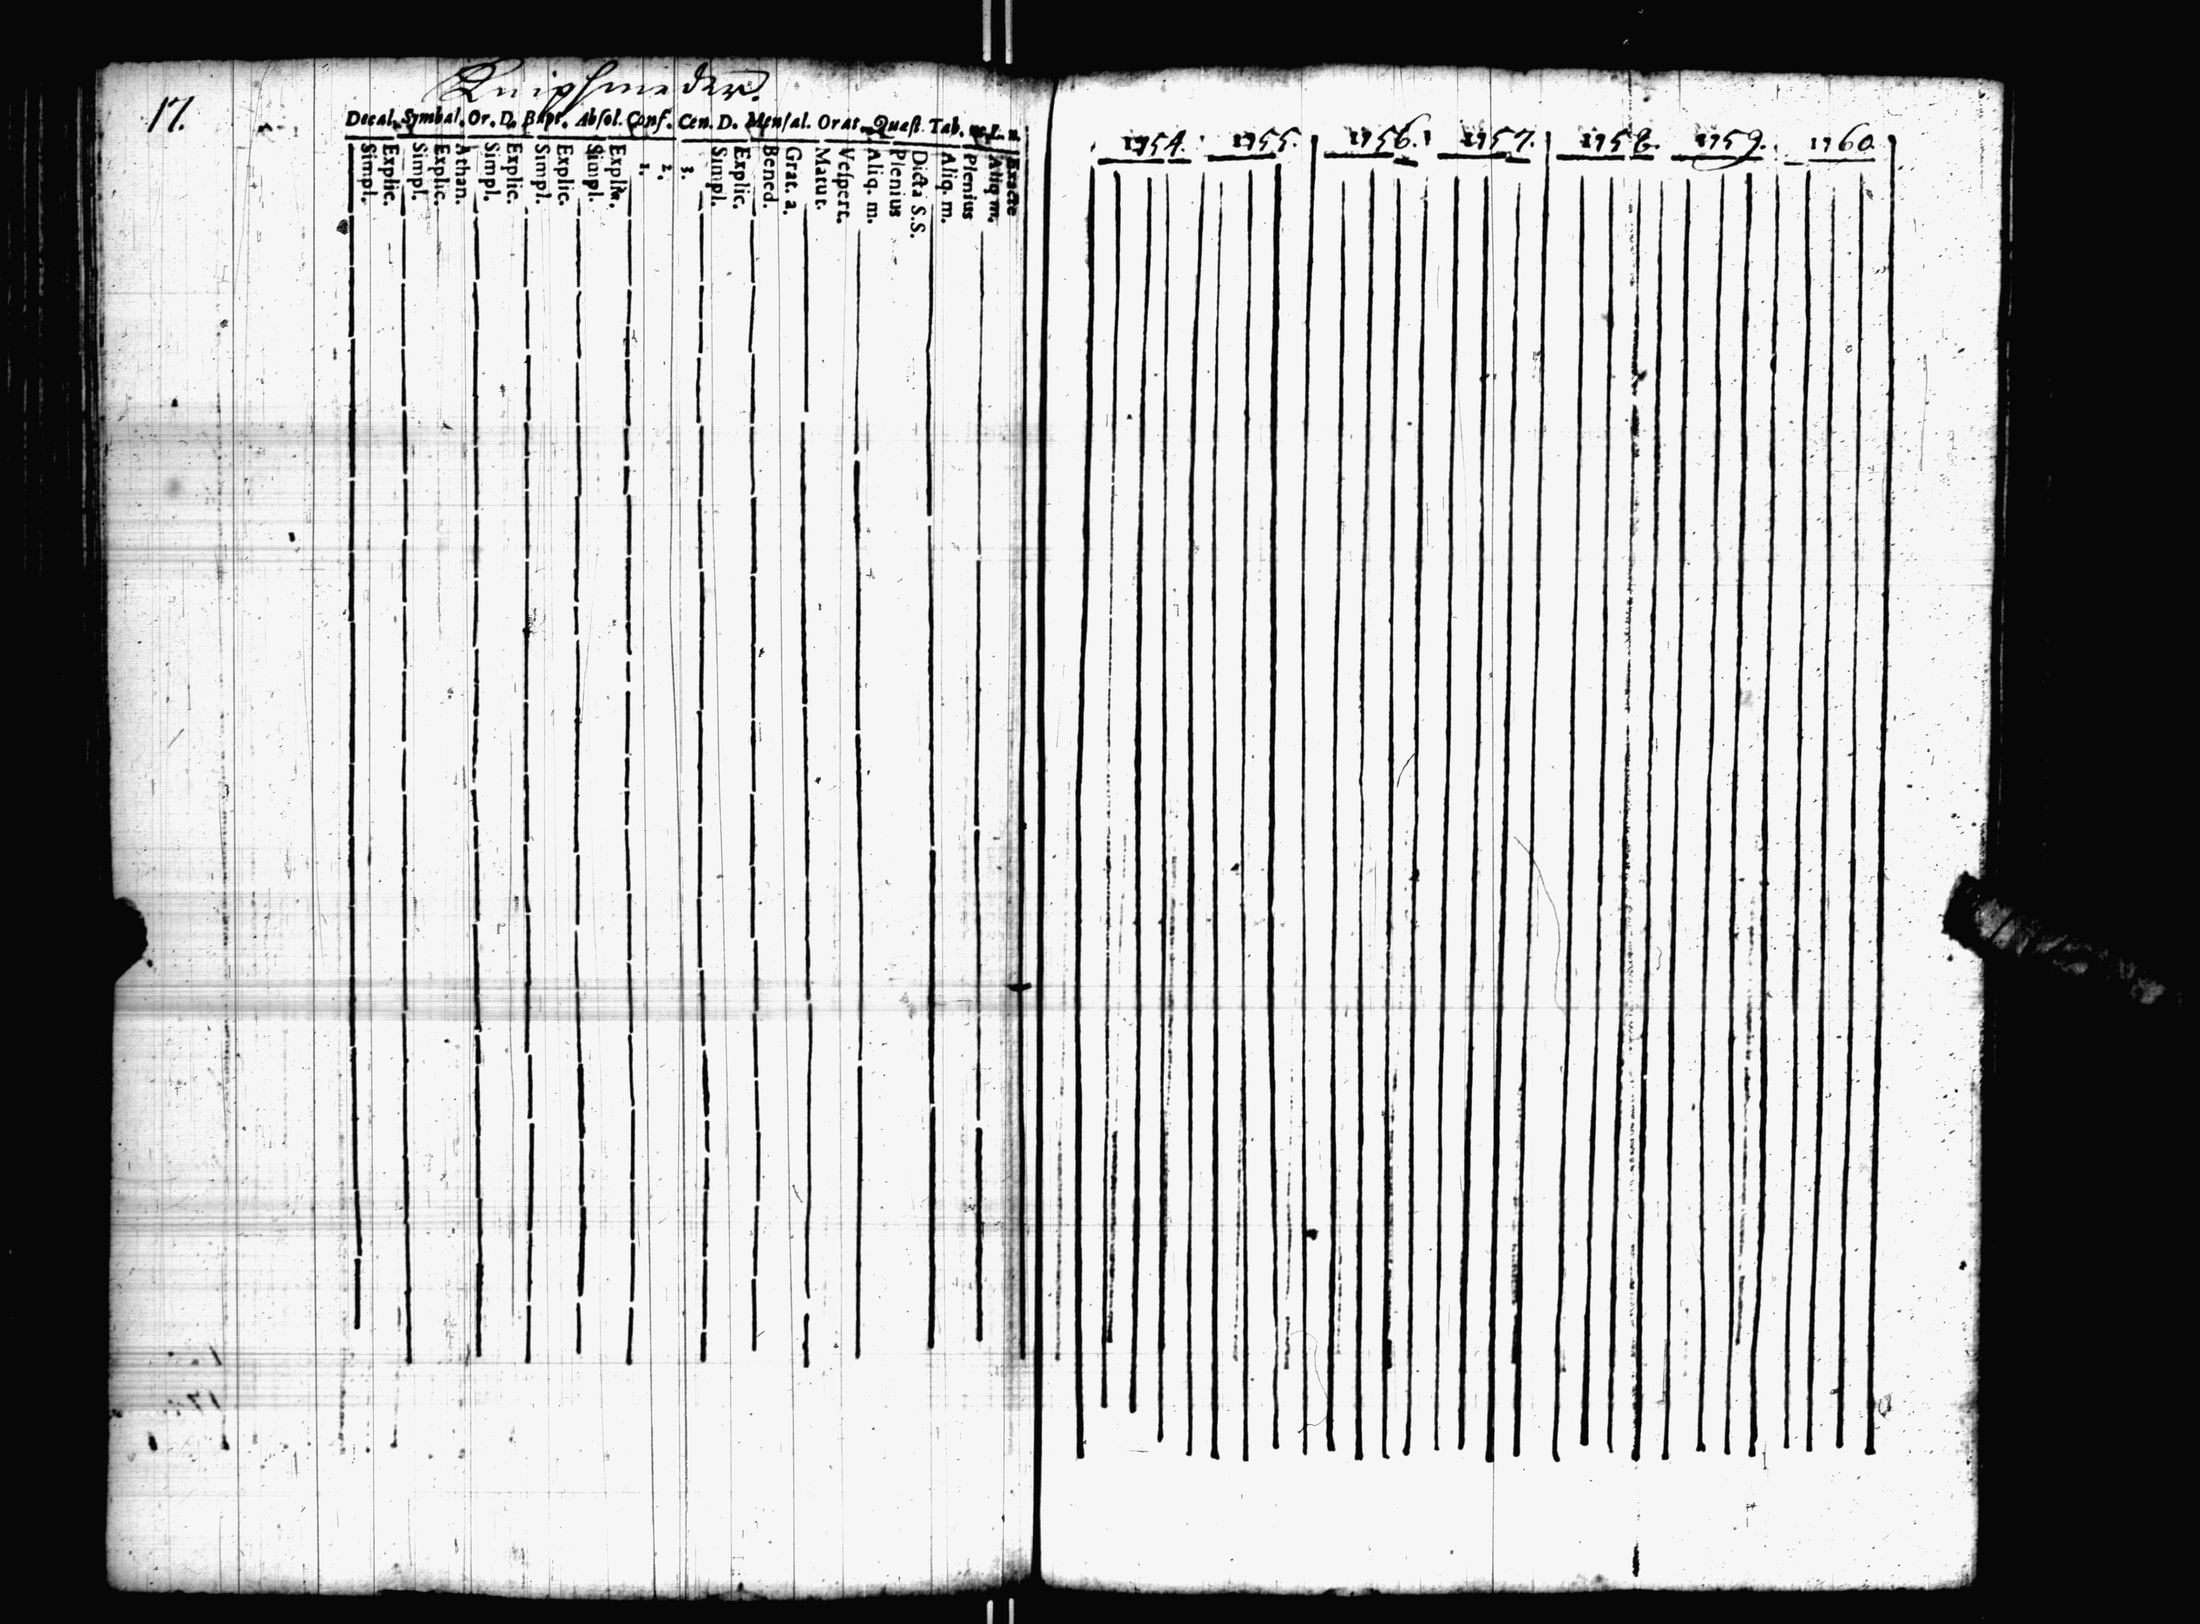 17.
Decal. Symbal. Or. D. Bapt. Absol. Conf. Cen. D. Mensal. Orat. Quæst. Tab. L. n.
Simpl.
Explic.
Simpl.
Explic.
Athan.
Simpl.
Explic.
Simpl.
Explic.
Simpl.
Explic.
1.
2.
3.
Simpl.
Explic.
Bened.
Grat. a.
Matut.
Vespert.
Aliq. m.
Plenius
Dicta. S.S.
Aliq. m.
Plenius
Aliq m.
Exacte
1754. 1755. 1756. 1757. 1758. 1759. 1760.